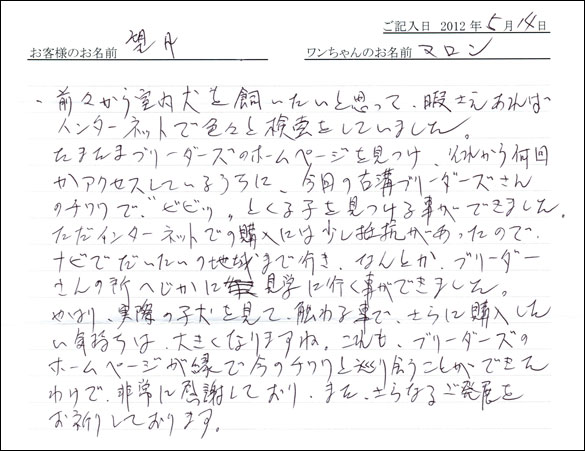 ご記入日 2012年5月14日
お客様のお名前 望月 ワンちゃんのお名前 マロン
・前々から室内犬を飼いたいと思って、暇さえあれば
インターネットで色々と検索をしていました。
たまたまブリーダーズのホームページを見つけ、それから何回
かアクセスしているうちに、今回の古溝ブリーダーズさん
のチワワで、"ビビッ"とくる子を見つける事ができました。
ただインターネットでの購入には少し抵抗があったので、
ナビでだいたいの地域まで行き、なんとか、ブリーダー
さんの所へじかに見学に行く事ができました。
やはり、実際の子犬を見て、触わる事で、さらに購入した
い気持ちは、大きくなりますね。これも、ブリーダーズの
ホームページが縁で今のチワワと巡り合うことができた
わけで、非常に感謝しており、また、さらなるご発展を
お祈りしております。